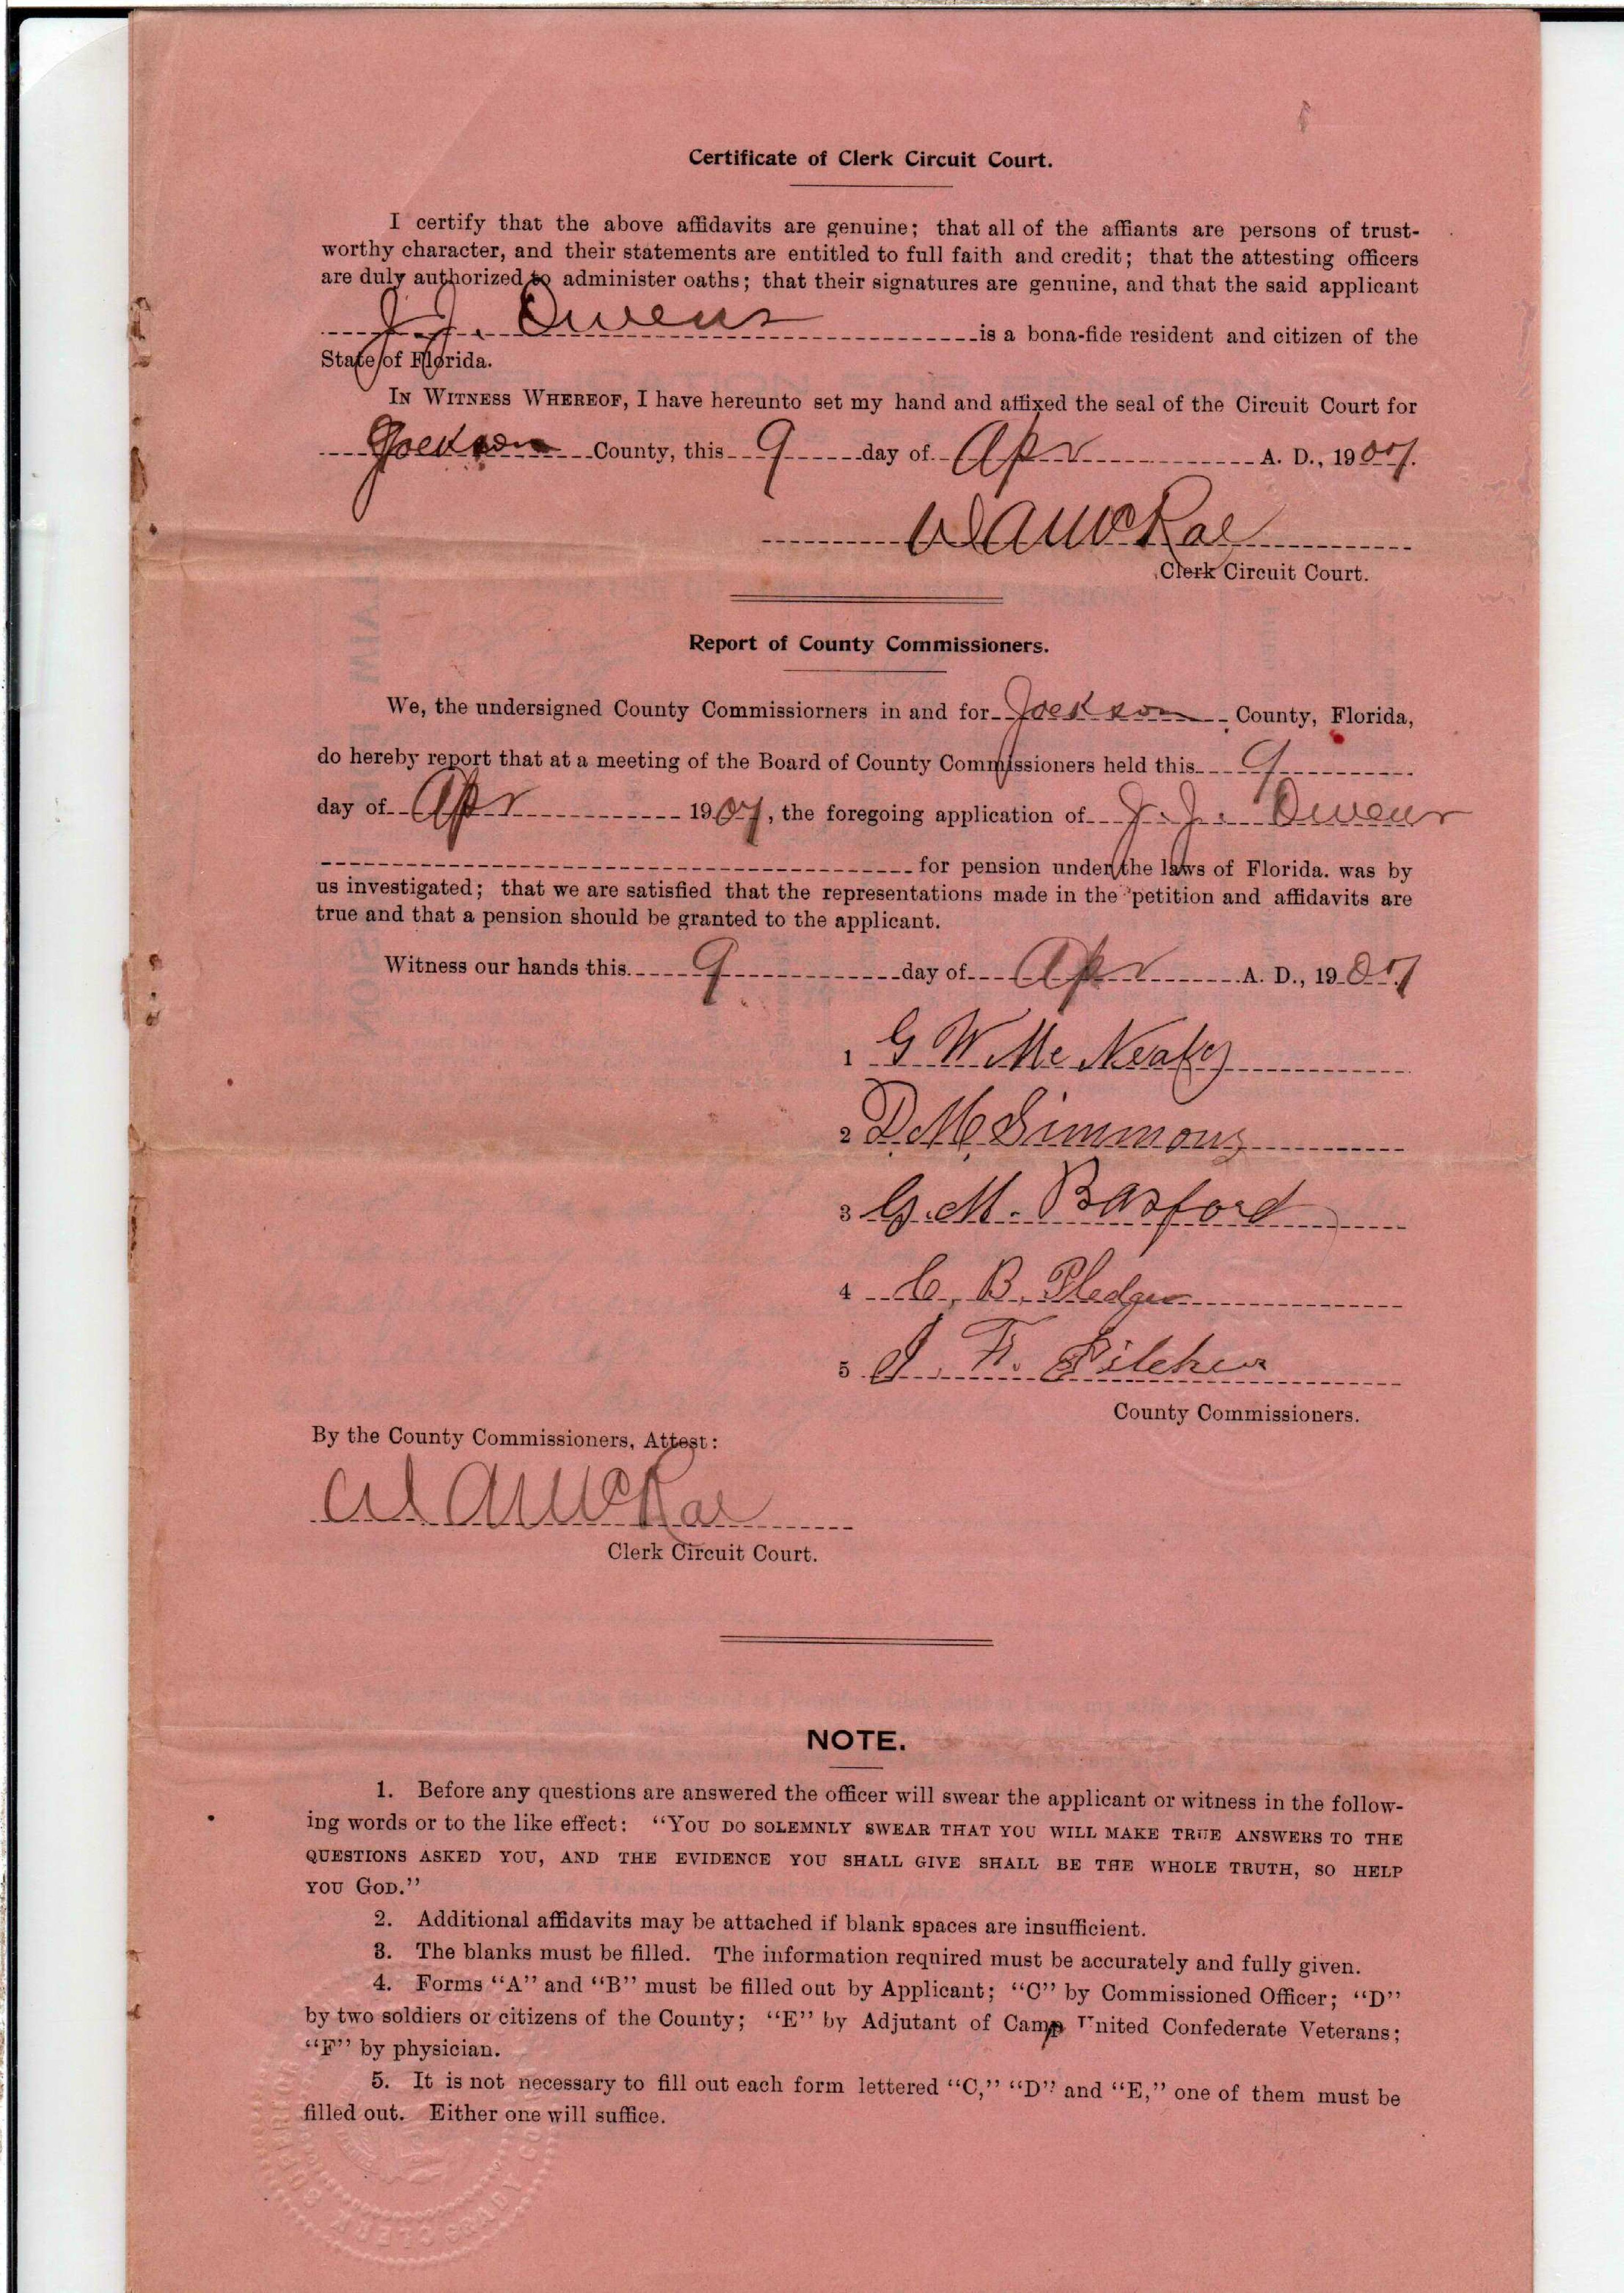 Certificate of Clerk Circuit Court.
I certify that the above affidavits are genuine; that all of the affiants are persons of trust-
worthy character, and their statements are entitled to full faith and credit; that the attesting officers
are duly authorized to administer oaths; that their signatures are genuine, and that the said applicant
J. J. Owens is a bona-fide resident and citizen of the
State of Florida.
IN WITNESS WHEREOF, I have hereunto set my hand and affixed the seal of the Circuit Court for
Jackson County, this 9 day of Apr A. D., 1907.
W A McRae
Clerk Circuit Court.
Report of County Commissioners.
We, the undersigned County Commissiorners in and for Jackson County, Florida,
do hereby report that at a meeting of the Board of County Commissioners held this 9
day of Apr 1907, the foregoing application of J. J. Owens
for pension under the laws of Florida. was by
us investigated; that we are satisfied that the representations made in the petition and affidavits are
true and that a pension should be granted to the applicant.
Witness our hands this 9 day of Apr A. D., 1907
1 G W Mc Nealy
2 D. M. Simmons
3 G. M. Basford
4 C. B. Pledger
5 J. F. Pilcher
County Commissioners.
By the County Commissioners, Attest:
W A McRae
Clerk Circuit Court.
NOTE.
1. Before any questions are answered the officer will swear the applicant or witness in the follow-
ing words or to the like effect: "YOU DO SOLEMNLY SWEAR THAT YOU WILL MAKE TRUE ANSWERS TO THE
QUESTIONS ASKED YOU, AND THE EVIDENCE YOU SHALL GIVE SHALL BE THE WHOLE TRUTH, SO HELP
YOU GOD."
2. Additional affidavits may be attached if blank spaces are insufficient.
3. The blanks must be filled. The information required must be accurately and fully given.
4. Forms "A" and "B" must be filled out by Applicant; "C" by Commissioned Officer; "D"
by two soldiers or citizens of the County; "E" by Adjutant of Camp United Confederate Veterans;
"F" by physician.
5. It is not necessary to fill out each form lettered "C," "D" and "E," one of them must be
filled out. Either one will suffice.